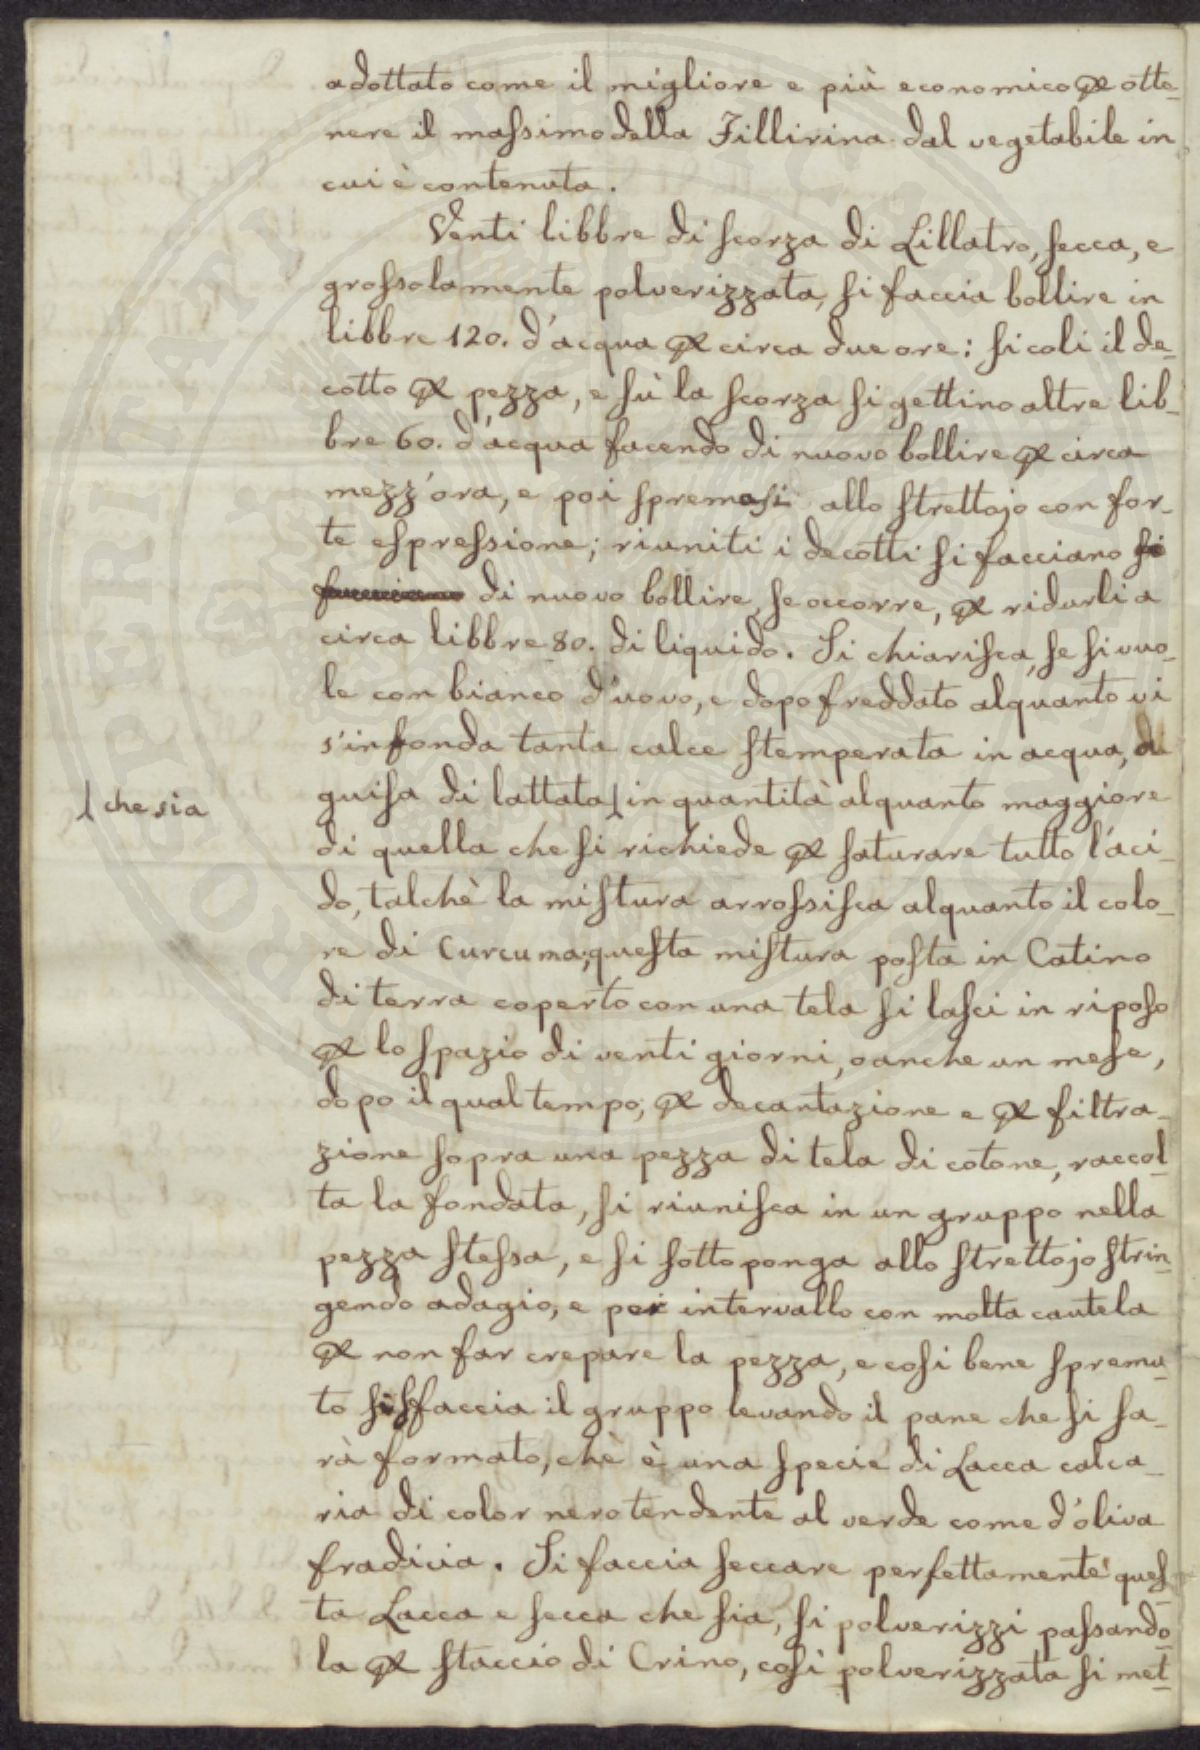 adottato come il migliore e più economico ꝑ otte-
nere il maſsimo della Fillirina dal vegetabile in
cui è contenuta.
Venti libbre di ſcorza di Lillatro, ſecca, e
groſsolamente polverizzata, ſi faccia bollire in
libbre 120. d'acqua ꝑ circa due ore: ſi coli il de-
cotto ꝑ pezza, e ſù la ſcorza ſi gettino altre lib-
bre 60. d'acqua facendo di nuovo bollire ꝑ circa
mezz'ora, e poi ſpremaſi allo ſtrettojo con for-
te eſpreſsione; riuniti i decotti ſi facciano ſi
facciano di nuovo bollire, ſe occorre, ꝑ ridurli a
circa libbre 80. di liquido. Si chiariſca, ſe ſi vuo-
le con bianco d'uovo, e dopo freddato alquanto vi
s'infonda tanta calce ſtemperata in acqua, a
guiſa di lattata, in quantità alquanto maggiore
che sia
di quella che ſi richiede ꝑ ſaturare tutto l'aci-
do, talchè la miſtura arroſsiſca alquanto il colo-
re di Curcuma; queſta miſtura poſta in Catino
di terra coperto con una tela ſi laſci in ripoſo
ꝑ lo ſpazio di venti giorni, o anche un meſe,
dopo il qual tempo, ꝑ decantazione e ꝑ filtra-
zione ſopra una pezza di tela di cotone, raccol-
ta la fondata, ſi riuniſca in un gruppo nella
pezza ſteſsa, e ſi ſottoponga allo ſtrettojo ſtrin-
gendo adagio, e per intervallo con molta cautela
ꝑ non far crepare la pezza, e coſi bene ſpremu-
to ſi ſfaccia il gruppo levando il pane che ſi ſa-
rà formato, che è una ſpecie di Lacca calca-
ria di color nero tendente al verde come d'oliva
fradicia. Si faccia ſeccare perfettamente queſ-
ta Lacca e ſecca che ſia, ſi polverizzi paſsando-
la ꝑ ſtaccio di Crino, coſì polverizzata ſi met-
PROSPERITATI